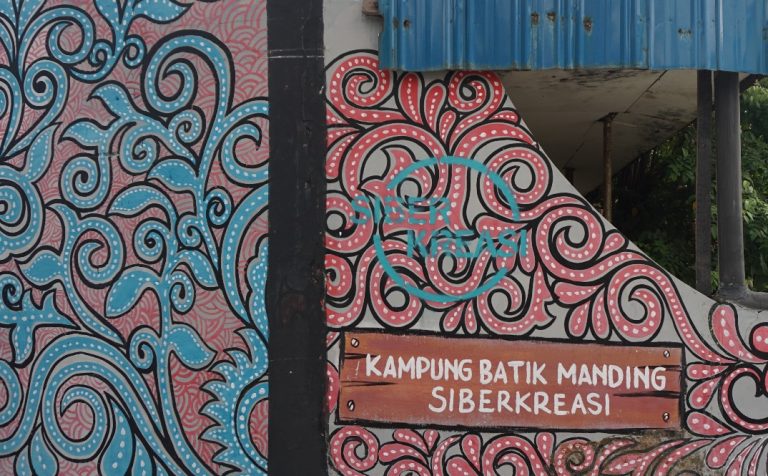 SIBER
KREASI
KAMPUNG BATIK MANDING
SIBERKREASI